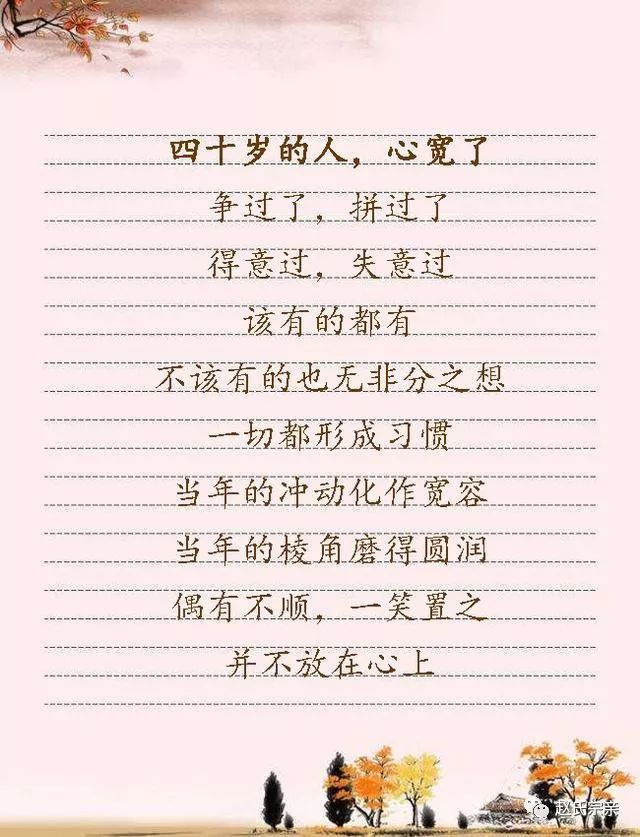 四十岁的人，心宽了
争过了，拼过了
得意过，失意过
该有的都有
不该有的也无非分之想
一切都形成习惯
当年的冲动化作宽容
当年的棱角磨得圆润
偶有不顺，一笑置之
并不放在心上
赵氏宗亲